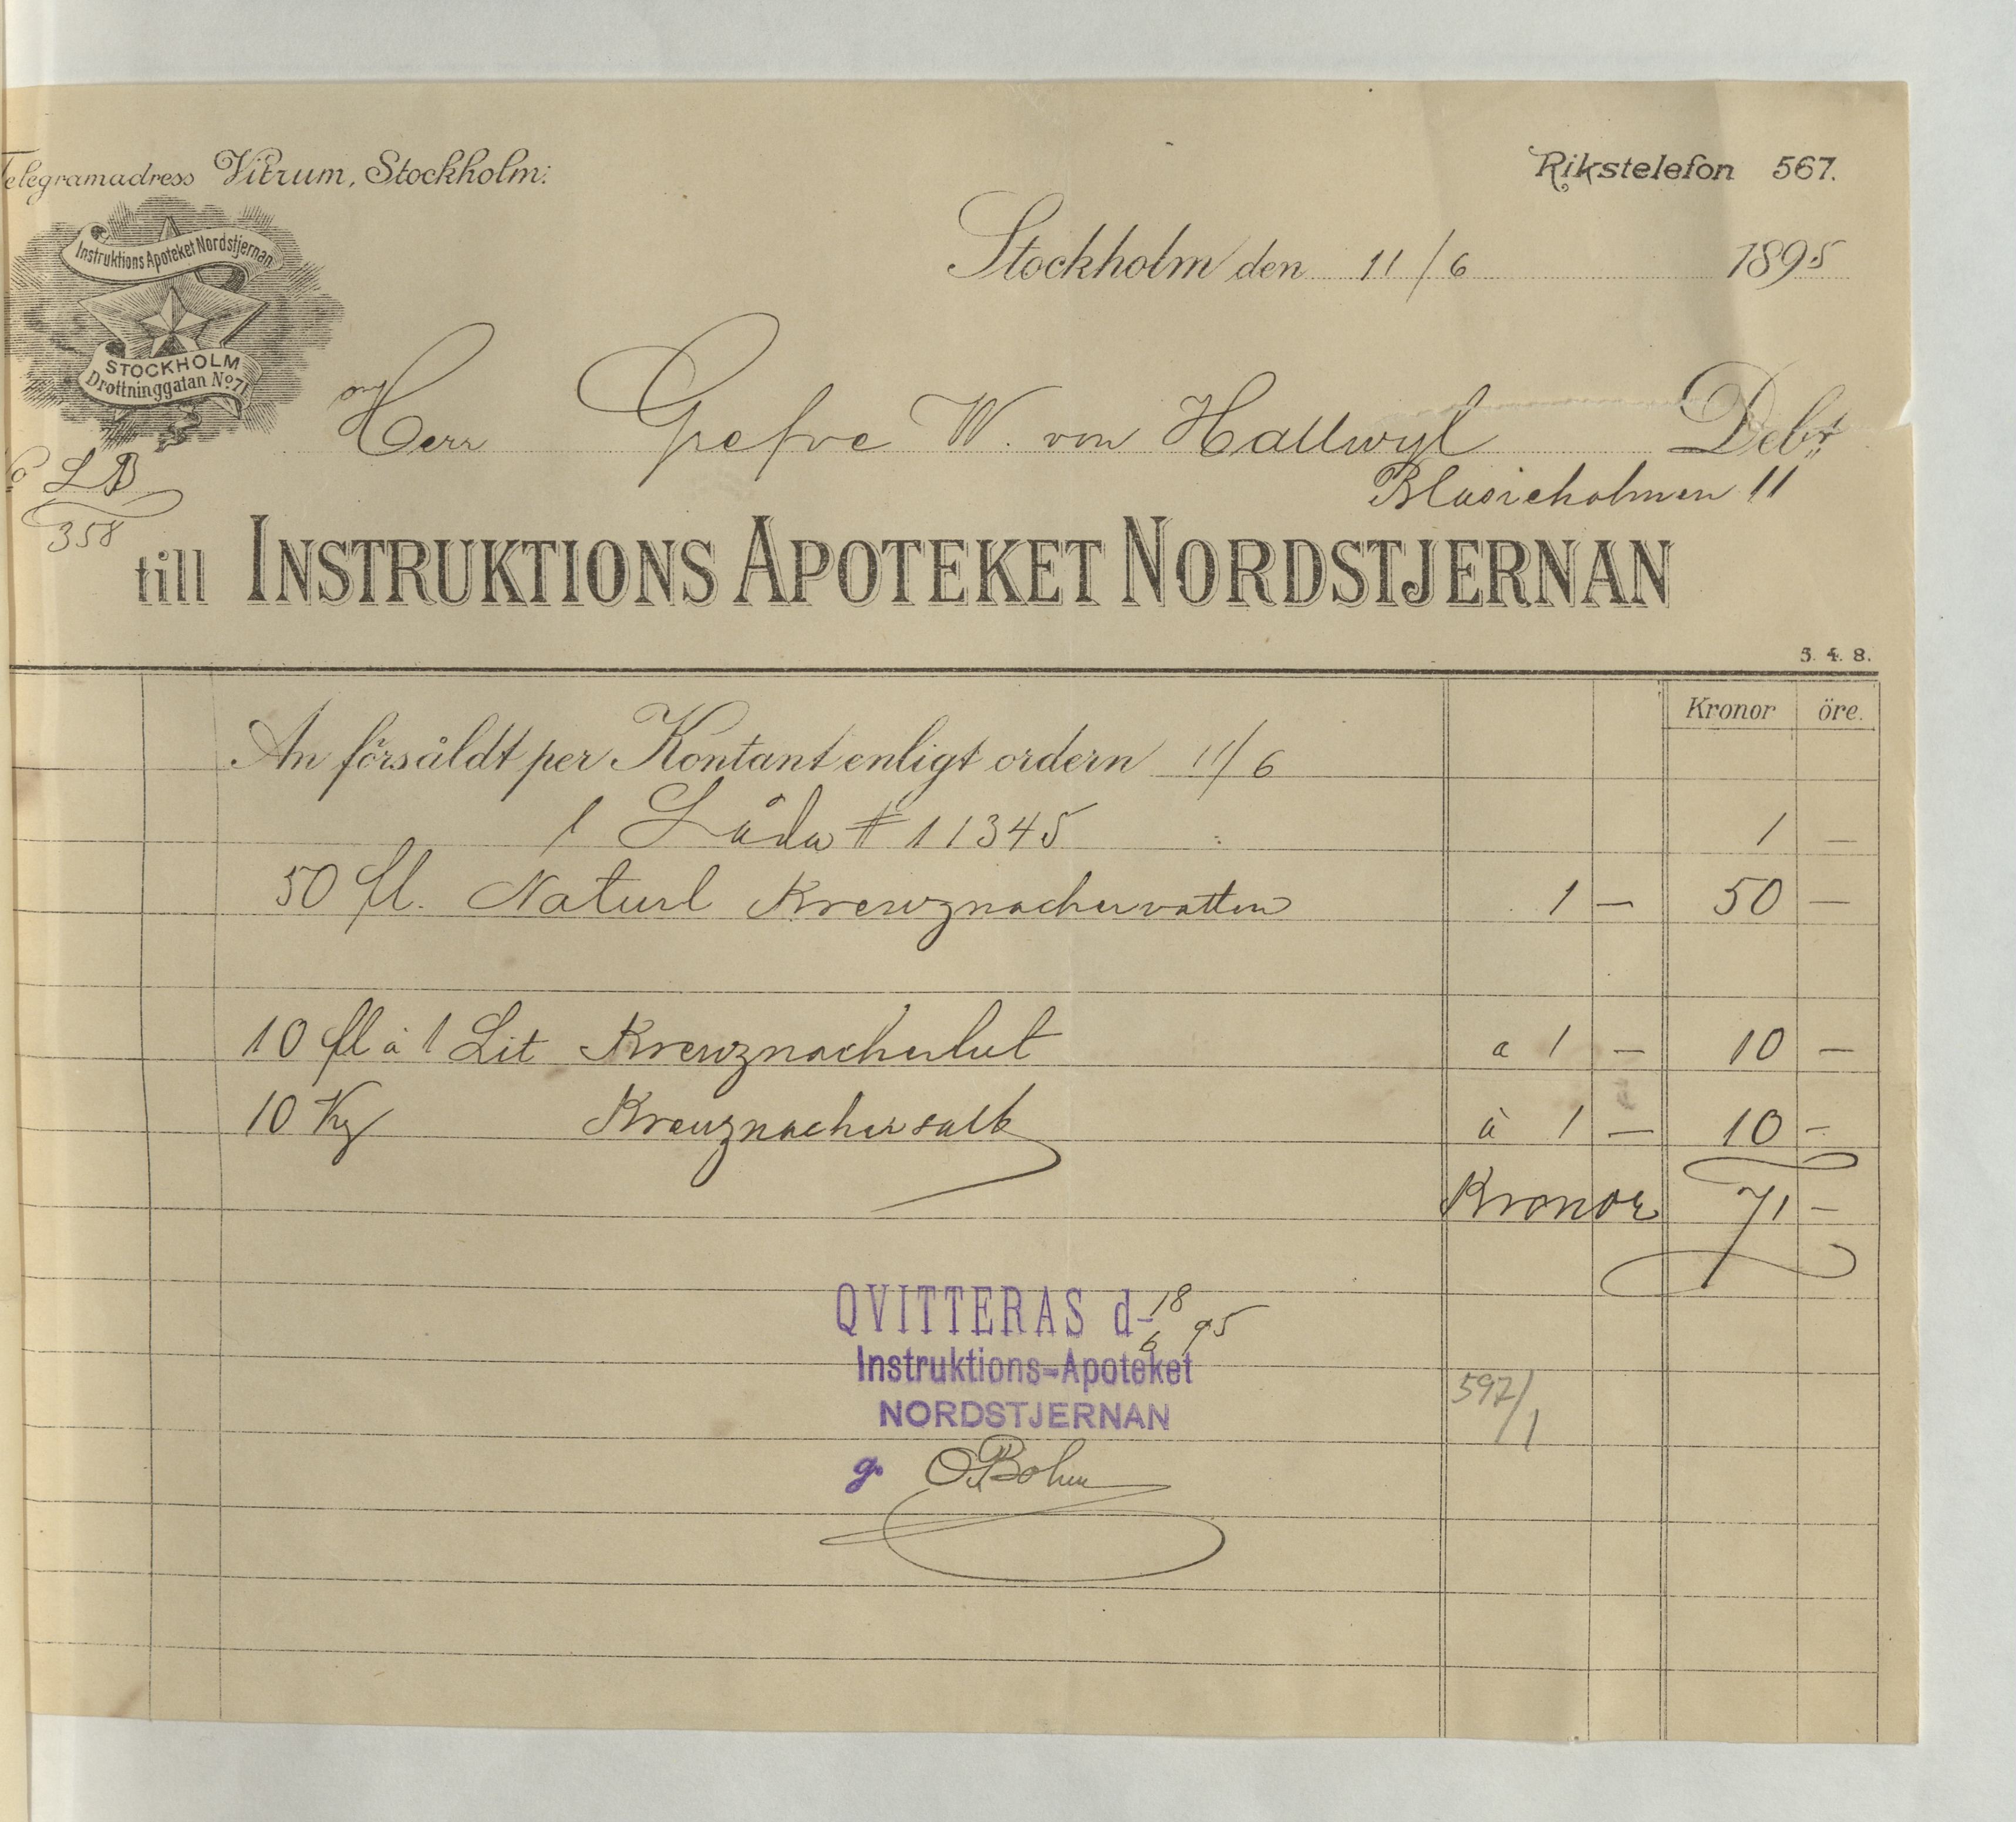 Telegramadress Vitrum, Stockholm.
Rikstelefon 567.
Instruktions Apoteket Nordstjernan
STOCKHOLM
Drottninggatan No 71
Stockholm den 11/6 1895
Herr Grefve W. von Hallwyl Debt
Blasieholmen 11
No LB
358
till INSTRUKTIONS APOTEKET NORDSTJERNAN
5. 4. 8.
Kronor öre.
An försåldt per Kontant enligt ordern 11/6
1 Låda # 11345 1 —
50 fl. Naturl Kreuznachervatten 1 — 50 —
10 fl à 1 Lit Kreuznacherlut a 1 — 10 —
10 Kg Kreuznachersalt à 1 — 10 —
Kronor 71 —
QVITTERAS d- 18/6 95
Instruktions-Apoteket
NORDSTJERNAN
597/1
g. O. Bohm